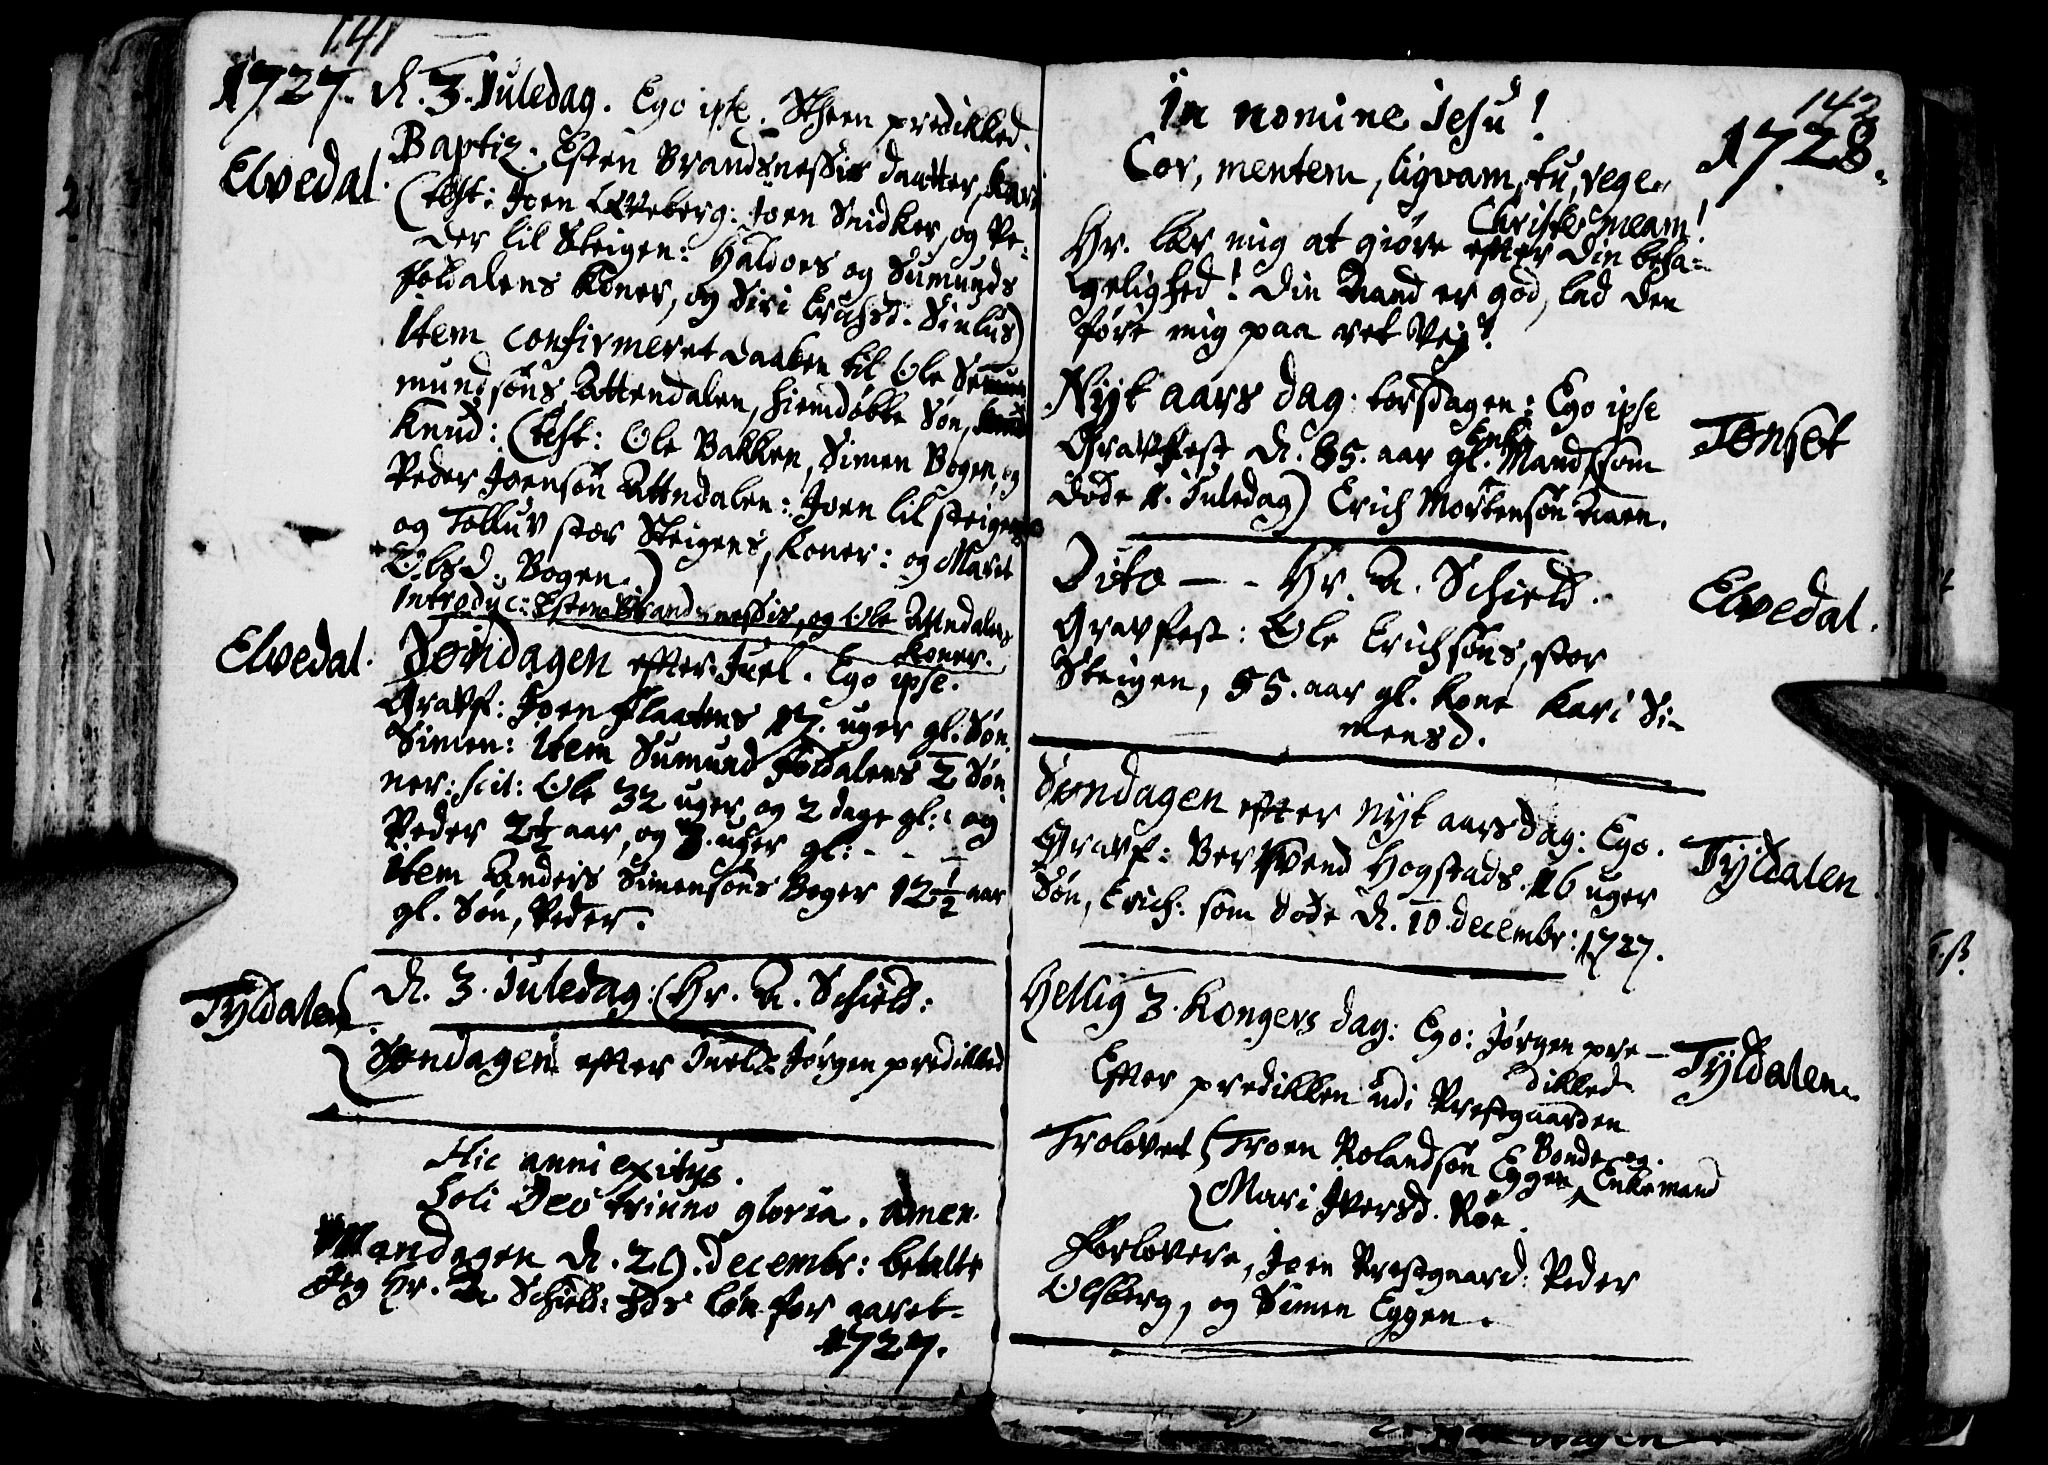 141
1727. d. 3. Juledag. Ego ipse. Stheen predikked.
Elvedal. Baptiz. Esten Brandsnessis daatter, Kari
(test: Joen Løveberg: Joen Snidker, og Pe-
der lil Steigen: Haldoes og Sumunds
Foldalens koner, og Siri Erichsd. Sinlus)
Item confirmeret daaben til Ole
mundsøns Attendalen, hiemdøbte Søn,
Knud: (test: Ole Bakken, Simen Bogen, og
Peder Joensøn Attndalen: Joen lil steigens
og Tolluv stor Steigens, koner: og Marit
Olsd. Bogen.)
Introduc: Esten Brandsnessis, og Ole Attndalens
koner.
Elvedal. Søndagen efter Juel. Ego ipse.
Gravf: Joen Flaatens 17. uger gl. Søn
Simen: Item Sumund Foldalens 2 Søn-
ner: scil: Ole 32 uger og 2 dage gl: og
Peder 2 1/2 aar, og 3. uger gl: - - -
Item Anders Simensøns Boger 12 1/2 aar
gl. Søn, Peder.
Tyldalen d. 3. Juledag: (Hr. A. Schield:
Søndagen efter Juel: Jørgen predikked
Hic anni exitus.
Soli Deo triuno gloria. Amen.
Mandagen d. 29. decembr: betalte
Jeg Hr. A. Schield: løn for aaret
1727.
142
In nomine Jesu!
1728.
Cor, mentem, ligvam, tu, rege,
Christe meam!
Hr. lær mig at giøre efter din beha-
gelighed! din Aand er god, lad den
føre mig paa ret Vej!
Nytaars dag. torsdagen: Ego ipse
Tønset
Gravfest d. 85. aar gl. Enke Mand, (som
døde 1. Juledag) Erich Mortensøn Aaen.
Dito - - Hr. A. Schield.
Elvedal.
Gravfest: Ole Erichsøns, stor
Steigen, 55. aar gl. kone Kari Si-
mensd.
Søndagen efter Nytaarsdag: Ego.
Tyldalen
Gravf: Bersvend Hogstads. 16 uger
Søn, Erich: som døde d. 10. decembr: 1727.
Hellig 3. Kongers dag: Ego: Jørgen pre-
dikked.
Tyldalen.
Efter predikken udi Prestgaarden
Trolovet (Troen Rolandsøn Eggen, Bonde og Enkemand
Mari Iversd. Røe.
Forlovere, Joen Prestgaard: Peder
Olsberg, og Simen Eggen.